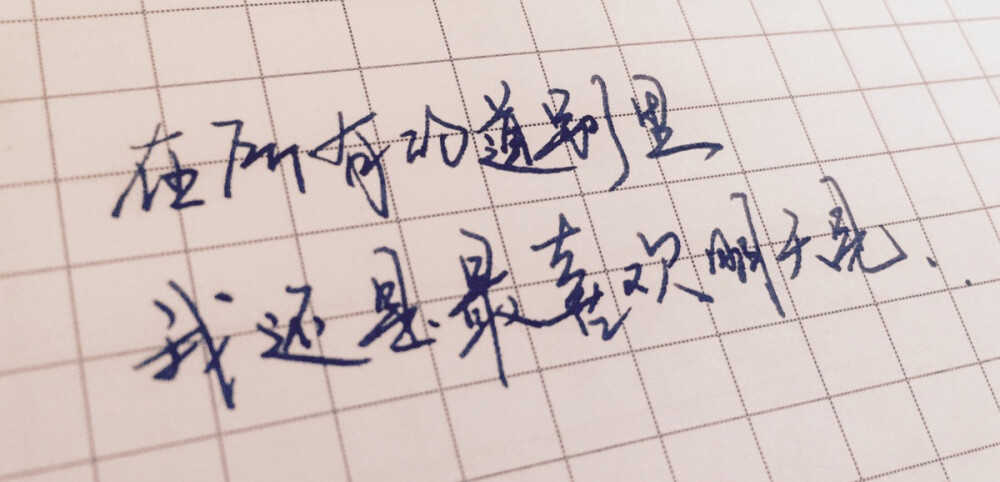 在所有的道别里
我还是最喜欢明天见..